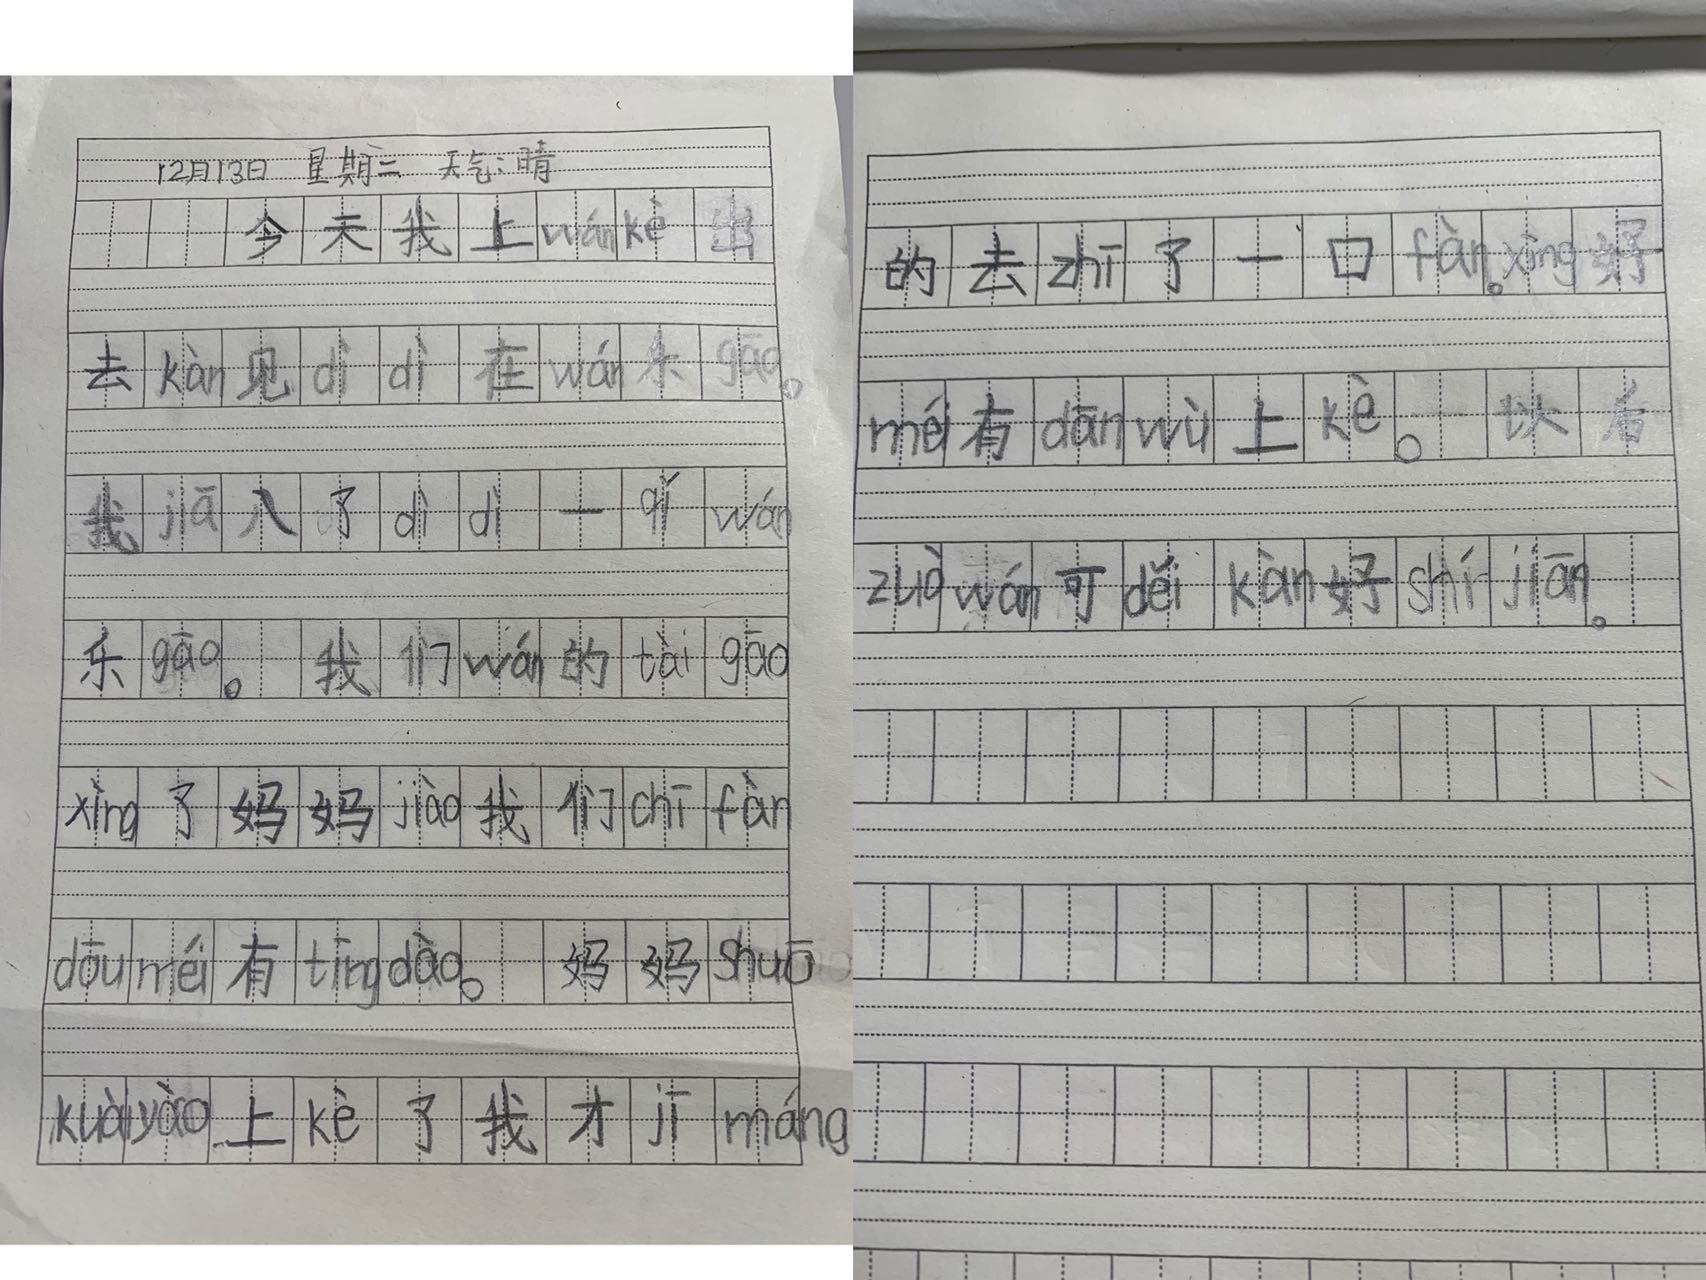 12月13日 星期二 天气：晴
今天我上wánkè出
去kàn见dìdì在wán乐gāo。
我jiā入了dìdì一qǐwán
乐gāo。我们wán的tàigāo
xìng了妈妈jiào我们chīfàn
dōuméi有tīngdào。妈妈shuō
kuàiyào上kè了我才jīmáng
的去zhī了一口fàn。xìng好
méi有dānwù上kè。以后
zuòwán可děikàn好shíjiān。